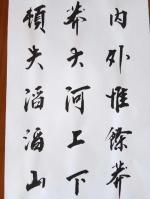 内外惟餘莽
莽大河上下
頓失滔滔山